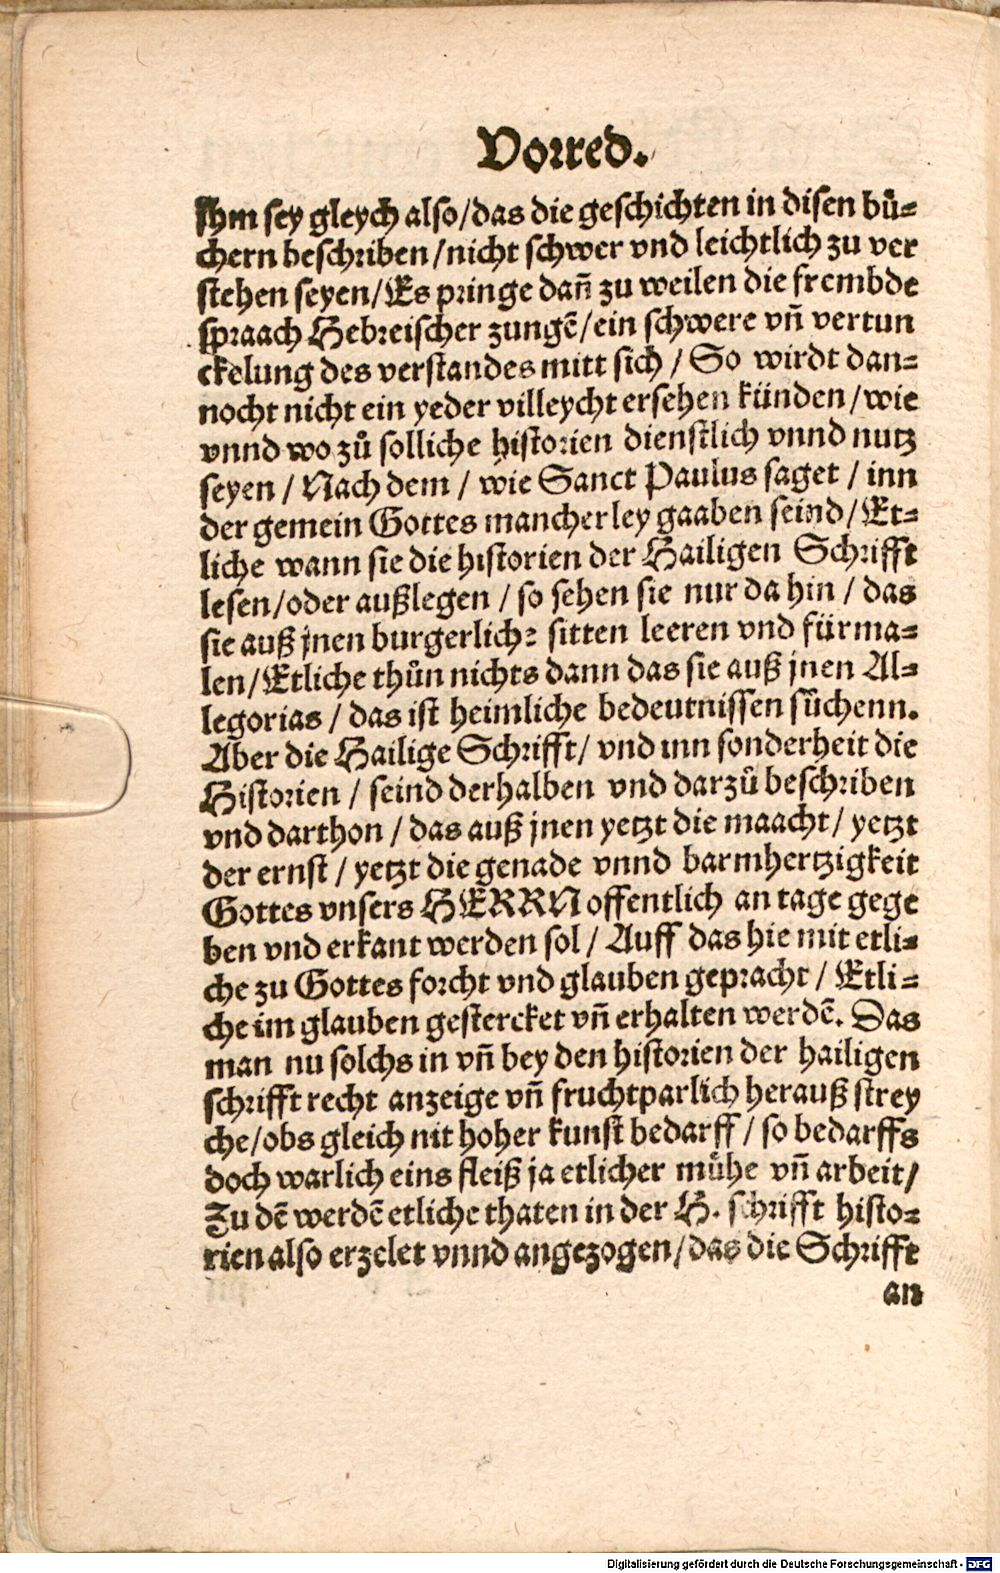 Vorred.
Jhm sey gleych also/das die geschichten in disen bů-
chern beschriben/nicht schwer vnd leichtlich zu ver
stehen seyen/Es pringe dañ zu weilen die frembde
spraach Hebreischer zungẽ/ein schwere vñ vertun
ckelung des verstandes mitt sich / So wirdt dan-
nocht nicht ein yeder villeycht ersehen künden/wie
vnnd wo zů solliche historien dienstlich vnnd nutz
seyen / Nach dem / wie Sanct Paulus saget / inn
der gemein Gottes mancherley gaaben seind/Et-
liche wann sie die historien der Hailigen Schrifft
lesen/oder außlegen / so sehen sie nur da hin / das
sie auß jnen burgerlich: sitten leeren vnd fürma-
len/Etliche thůn nichts dann das sie auß jnen Al-
legorias / das ist heimliche bedeutnissen sůchenn.
Aber die Hailige Schrifft/ vnd inn sonderheit die
Historien / seind derhalben vnd darzů beschriben
vnd darthon / das auß jnen yetzt die maacht/ yetzt
der ernst / yetzt die genade vnnd barmhertzigkeit
Gottes vnsers HERRN offentlich an tage gege
ben vnd erkant werden sol / Auff das hie mit etli-
che zu Gottes forcht vnd glauben gepracht / Etli-
che im glauben gestercket vñ erhalten werdẽ. Das
man nu solchs in vñ bey den historien der hailigen
schrifft recht anzeige vñ fruchtparlich herauß strey
che/obs gleich nit hoher kunst bedarff / so bedarffs
doch warlich eins fleiß ja etlicher můhe vñ arbeit/
Zu dẽ werdẽ etliche thaten in der H. schrifft histo-
rien also erzelet vnnd angezogen/das die Schrifft
an
Digitalisierung gefördert durch die Deutsche Forschungsgemeinschaft - DFG